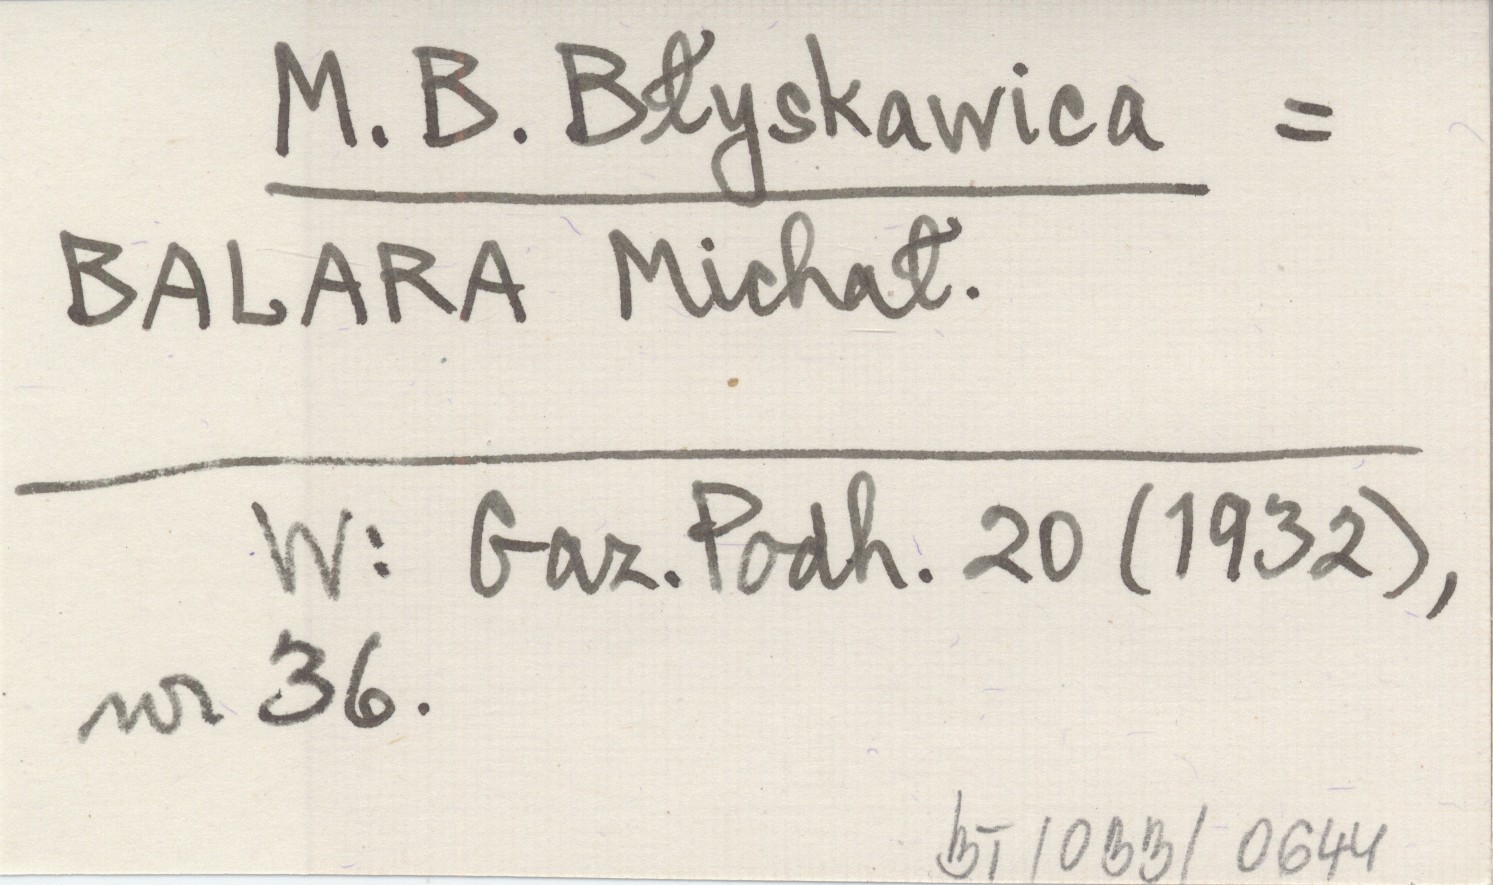 M. B. Błyskawica =
BALARA Michał.
W: Gaz. Podh. 20 (1932),
nr 36.
0644